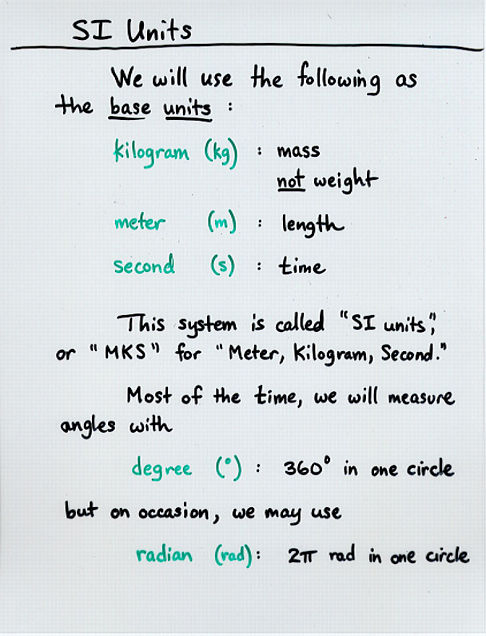 SI Units
We will use the following as
the base units :
kilogram (kg) : mass
not weight
meter (m) : length
second (s) : time
This system is called "SI units",
or "MKS" for "Meter, Kilogram, Second."
Most of the time, we will measure
angles with
degree (°) : 360° in one circle
but on occasion, we may use
radian (rad): 2π rad in one circle